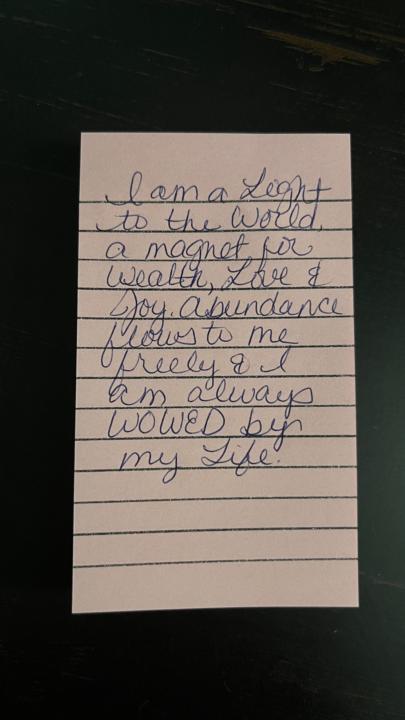 I am a Light
to the World,
a magnet for
Wealth, Love &
Joy. Abundance
flows to me
freely & I
am always
WOWED by
my Life.